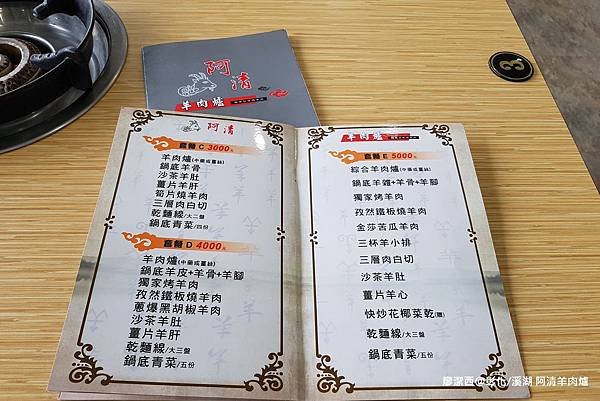 阿清
羊肉爐
3
阿清
套餐 C 3000元
羊肉爐(中藥或薑絲)
鍋底羊骨
沙茶羊肚
薑片羊肝
筍片燒羊肉
三層肉白切
乾麵線/大二盤
鍋底青菜/四份
套餐 D 4000元
羊肉爐(中藥或薑絲)
鍋底羊皮+羊骨+羊腳
獨家烤羊肉
孜然鐵板燒羊肉
蔥爆黑胡椒羊肉
沙茶羊肚
薑片羊肝
乾麵線/大三盤
鍋底青菜/五份
羊肉爐
套餐 E 5000元
綜合羊肉爐(中藥或薑絲)
鍋底羊雜+羊骨+羊腳
獨家烤羊肉
孜然鐵板燒羊肉
金莎苦瓜羊肉
三杯羊小排
三層肉白切
沙茶羊肚
薑片羊心
快炒花椰菜乾(贈)
乾麵線/大三盤
鍋底青菜/五份
廖潔西@彰化/溪湖 阿清羊肉爐